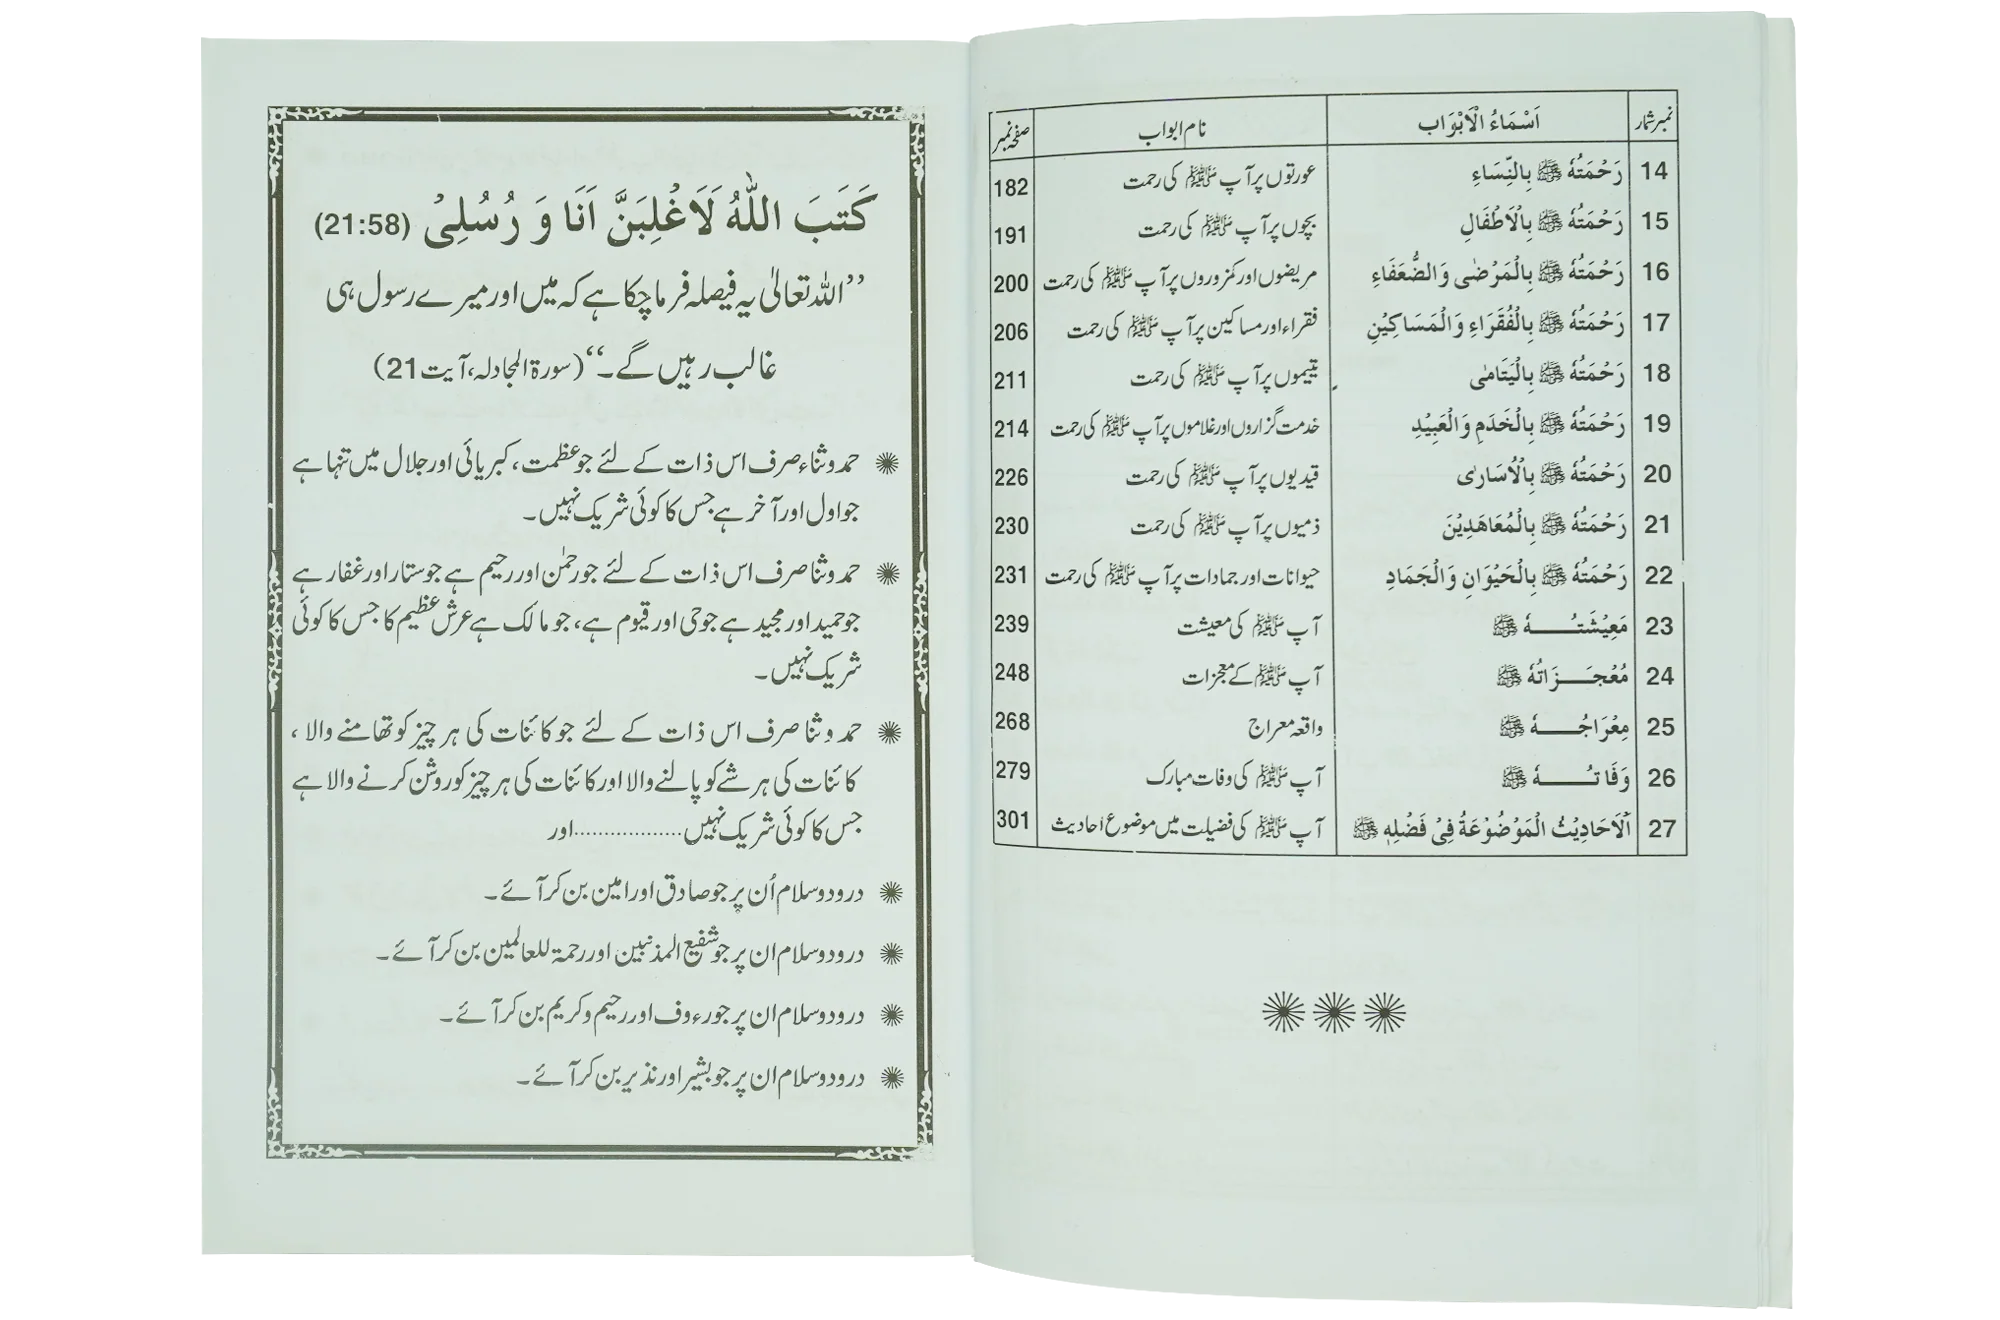 نمبر شمار اَسْمَاءُ الْاَبْوَاب نام ابواب صفحہ نمبر
14 رَحْمَتُهٗ ﷺ بِالنِّسَاءِ عورتوں پر آپ ﷺ کی رحمت 182
15 رَحْمَتُهٗ ﷺ بِالْاَطْفَالِ بچوں پر آپ ﷺ کی رحمت 191
16 رَحْمَتُهٗ ﷺ بِالْمَرْضٰی وَالضُّعَفَاءِ مریضوں اور کمزوروں پر آپ ﷺ کی رحمت 200
17 رَحْمَتُهٗ ﷺ بِالْفُقَرَاءِ وَالْمَسَاكِيْنِ فقراء اور مساکین پر آپ ﷺ کی رحمت 206
18 رَحْمَتُهٗ ﷺ بِالْيَتَامٰی یتیموں پر آپ ﷺ کی رحمت 211
19 رَحْمَتُهٗ ﷺ بِالْخَدَمِ وَالْعَبِيْدِ خدمت گزاروں اور غلاموں پر آپ ﷺ کی رحمت 214
20 رَحْمَتُهٗ ﷺ بِالْاُسَارٰی قیدیوں پر آپ ﷺ کی رحمت 226
21 رَحْمَتُهٗ ﷺ بِالْمُعَاهَدِيْنَ ذمیوں پر آپ ﷺ کی رحمت 230
22 رَحْمَتُهٗ ﷺ بِالْحَيْوَانِ وَالْجَمَادِ حیوانات اور جمادات پر آپ ﷺ کی رحمت 231
23 مَعِيْشَتُـــهٗ ﷺ آپ ﷺ کی معیشت 239
24 مُعْجِـــزَاتُهٗ ﷺ آپ ﷺ کے معجزات 248
25 مِعْرَاجُـــهٗ ﷺ واقعہ معراج 268
26 وَفَاتُـــهٗ ﷺ آپ ﷺ کی وفات مبارک 279
27 اَلْاَحَادِيْثُ الْمَوْضُوْعَةُ فِيْ فَضْلِهٖ ﷺ آپ ﷺ کی فضیلت میں موضوع احادیث 301
كَتَبَ اللّٰهُ لَاَغْلِبَنَّ اَنَا وَ رُسُلِیْ (21:58)
’’اللہ تعالیٰ یہ فیصلہ فرما چکا ہے کہ میں اور میرے رسول ہی
غالب رہیں گے۔‘‘ (سورۃ المجادلہ، آیت 21)
حمد و ثناء صرف اس ذات کے لئے جو عظمت، کبریائی اور جلال میں تنہا ہے
جو اول اور آخر ہے جس کا کوئی شریک نہیں۔
حمد و ثنا صرف اس ذات کے لئے جو رحمٰن اور رحیم ہے جو ستار اور غفار ہے
جو حمید اور مجید ہے جو حی اور قیوم ہے، جو مالک ہے عرش عظیم کا جس کا کوئی
شریک نہیں۔
حمد و ثنا صرف اس ذات کے لئے جو کائنات کی ہر چیز کو تھامنے والا،
کائنات کی ہر شے کو پالنے والا اور کائنات کی ہر چیز کو روشن کرنے والا ہے
جس کا کوئی شریک نہیں..................اور
درود و سلام اُن پر جو صادق اور امین بن کر آئے۔
درود و سلام ان پر جو شفیع المذنبین اور رحمۃ للعالمین بن کر آئے۔
درود و سلام ان پر جو رءوف اور رحیم و کریم بن کر آئے۔
درود و سلام ان پر جو بشیر اور نذیر بن کر آئے۔